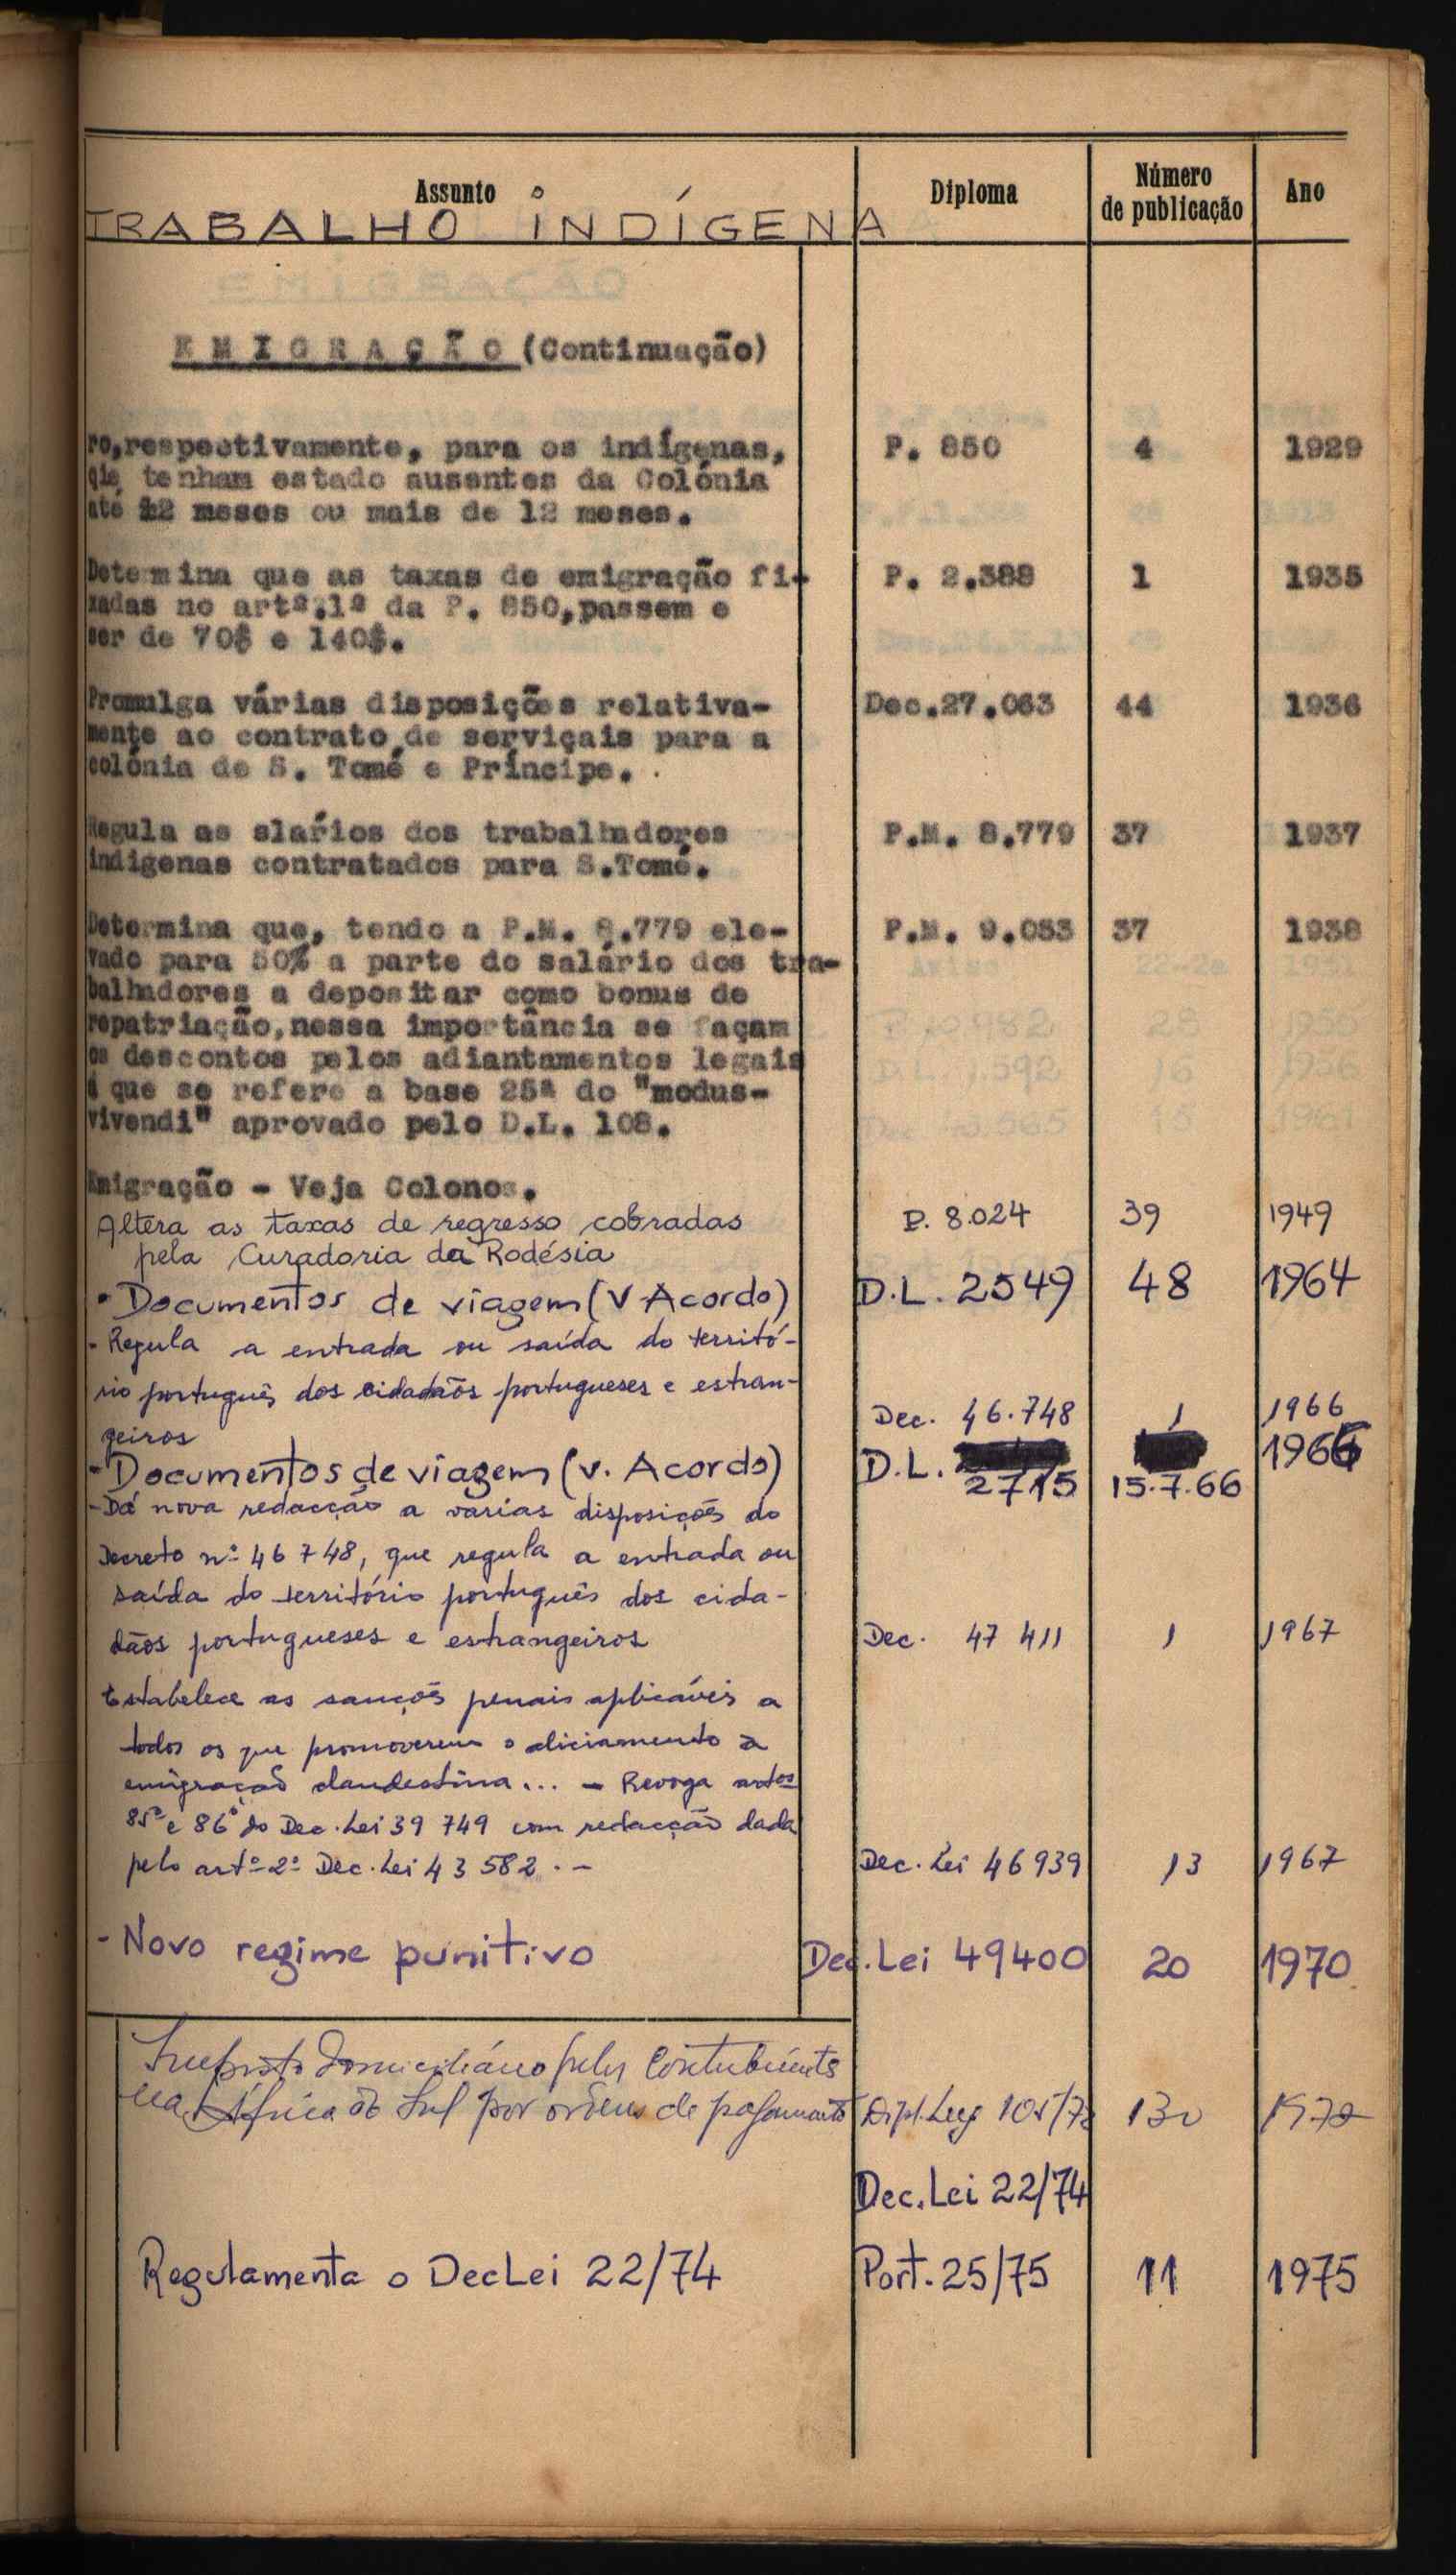 Assunto Diploma Número de publicação Ano
TRABALHO INDÍGENA
EMIGRAÇÃO (Continuação)
ro,respectivamente, para os indígenas, P. 850 4 1929
que tenham estado ausentes da Colónia
até 12 meses ou mais de 12 meses.
Determina que as taxas de emigração fi- P. 2.388 1 1935
xadas no artº.1º da P. 850,passem e
ser de 70$ e 140$.
Promulga várias disposições relativa- Dec.27.063 44 1936
mente ao contrato de serviçais para a
colónia de S. Tomé e Príncipe.
Regula as slários dos trabalhadores P.M. 8.779 37 1937
indigenas contratados para S.Tomé.
Determina que, tendo a P.M. 8.779 ele- P.M. 9.053 37 1938
vado para 50% a parte do salário dos tra-
balhadores a depositar como bonus de
repatriação,nessa importância se façam
os descontos pelos adiantamentos legais
a que se refere a base 25ª do "modus-
vivendi" aprovado pelo D.L. 108.
Emigração - Veja Colonos.
Altera as taxas de regresso cobradas P. 8.024 39 1949
pela Curadoria da Rodésia
• Documentos de viagem (V Acordo) D.L. 2549 48 1964
- Regula a entrada ou saída do territó-
rio português dos cidadãos portugueses e estran-
geiros Dec. 46.748 1 1966
- Documentos de viagem (v. Acordo) D.L. 2715 15.7.66 1966
- Dá nova redacção a varias disposições do
Decreto nº 46 748, que regula a entrada ou
saída do território português dos cida-
dãos portugueses e estrangeiros Dec. 47 411 1 1967
Estabelece as sanções penais aplicáveis a
todos os que promoverem o aliciamento à
emigração clandestina... - Revoga artos
85º e 86º do Dec. Lei 39 749 com redacção dada
pelo artº 2º Dec. Lei 43 582 . - Dec. Lei 46 939 13 1967
- Novo regime punitivo Dec. Lei 49400 20 1970
Imposto Domiciliário pelos Contribuintes
na África do Sul por ordens de pagamento Dipl. Leg
Dec. Lei 22/74
Regulamenta o Dec Lei 22/74 Port. 25/75 11 1975